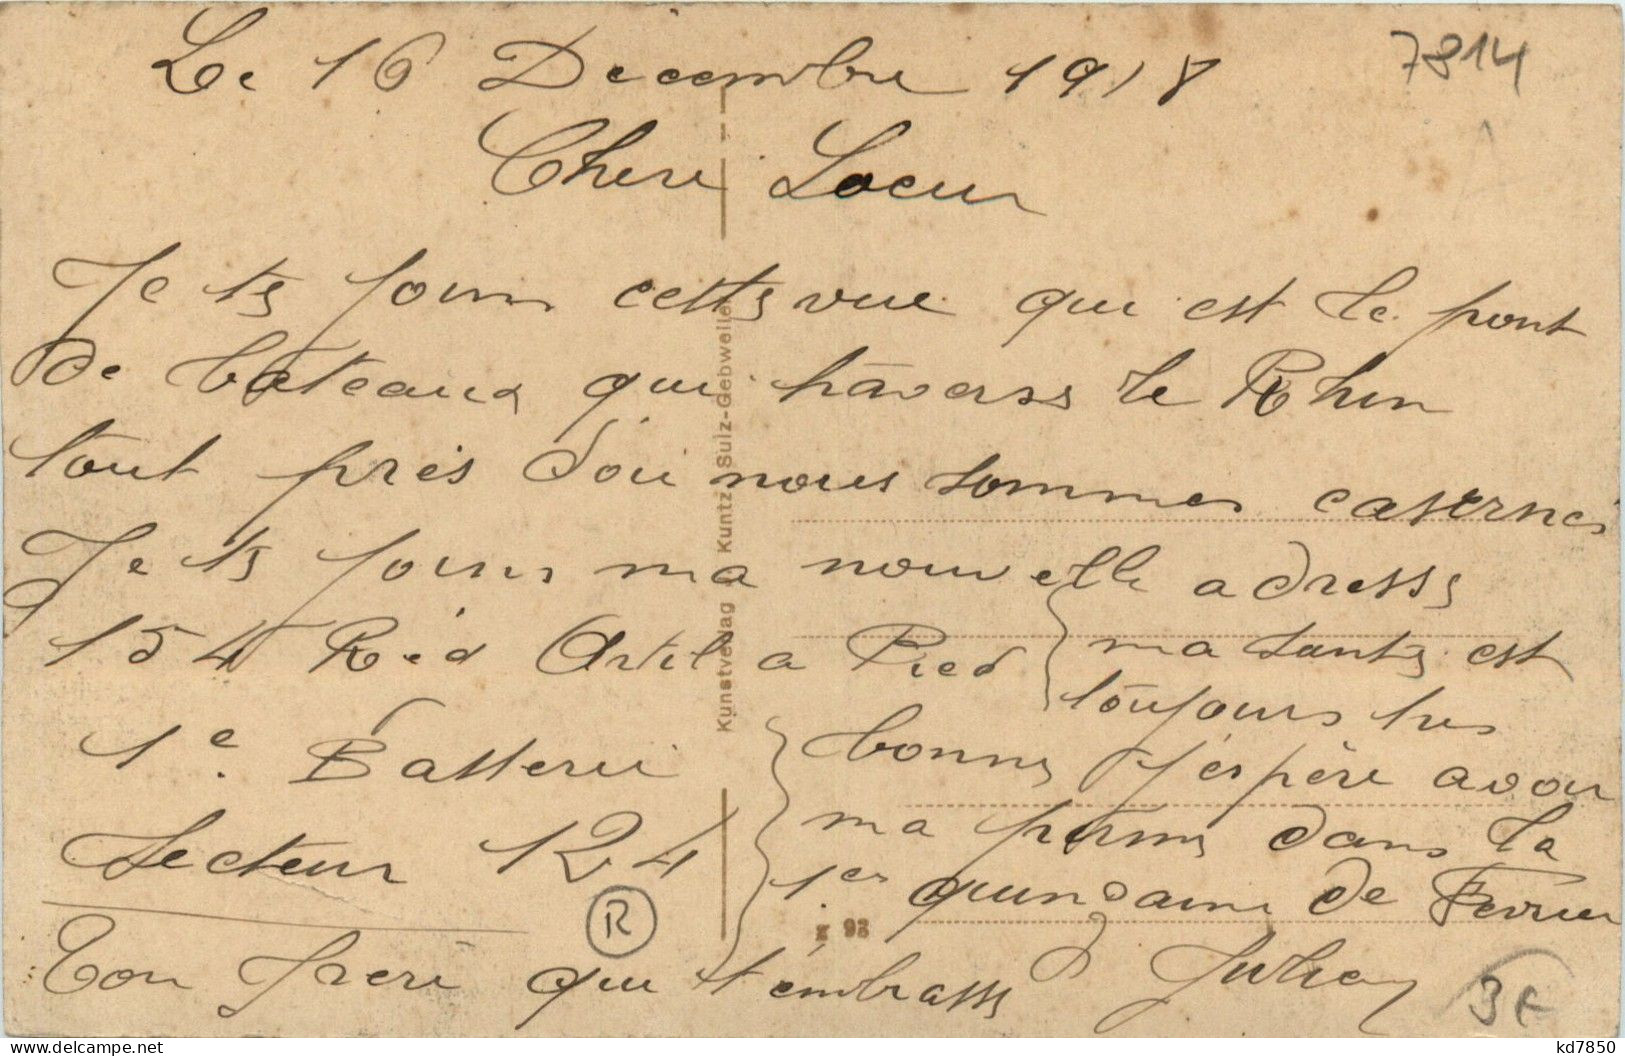 Le 16 Decembre 1918
7814
Chere Soeur
Je te joins cette vue qui est le pont
de bateaux qui traverse le Rhin
tout près d'où nous sommes casernés
Je te joins ma nouvelle adresse
154 Reg Artil a Pied
1e Batterie
Secteur 124
ma santé est
toujours tres
bonne J'espère avoir
ma perme dans la
1er quinzaine de Fevrier
Ton frere qui t'embrasse
Kunstverlag Kuntz, Sulz-Gebweiler
R
93
3€
kd7850